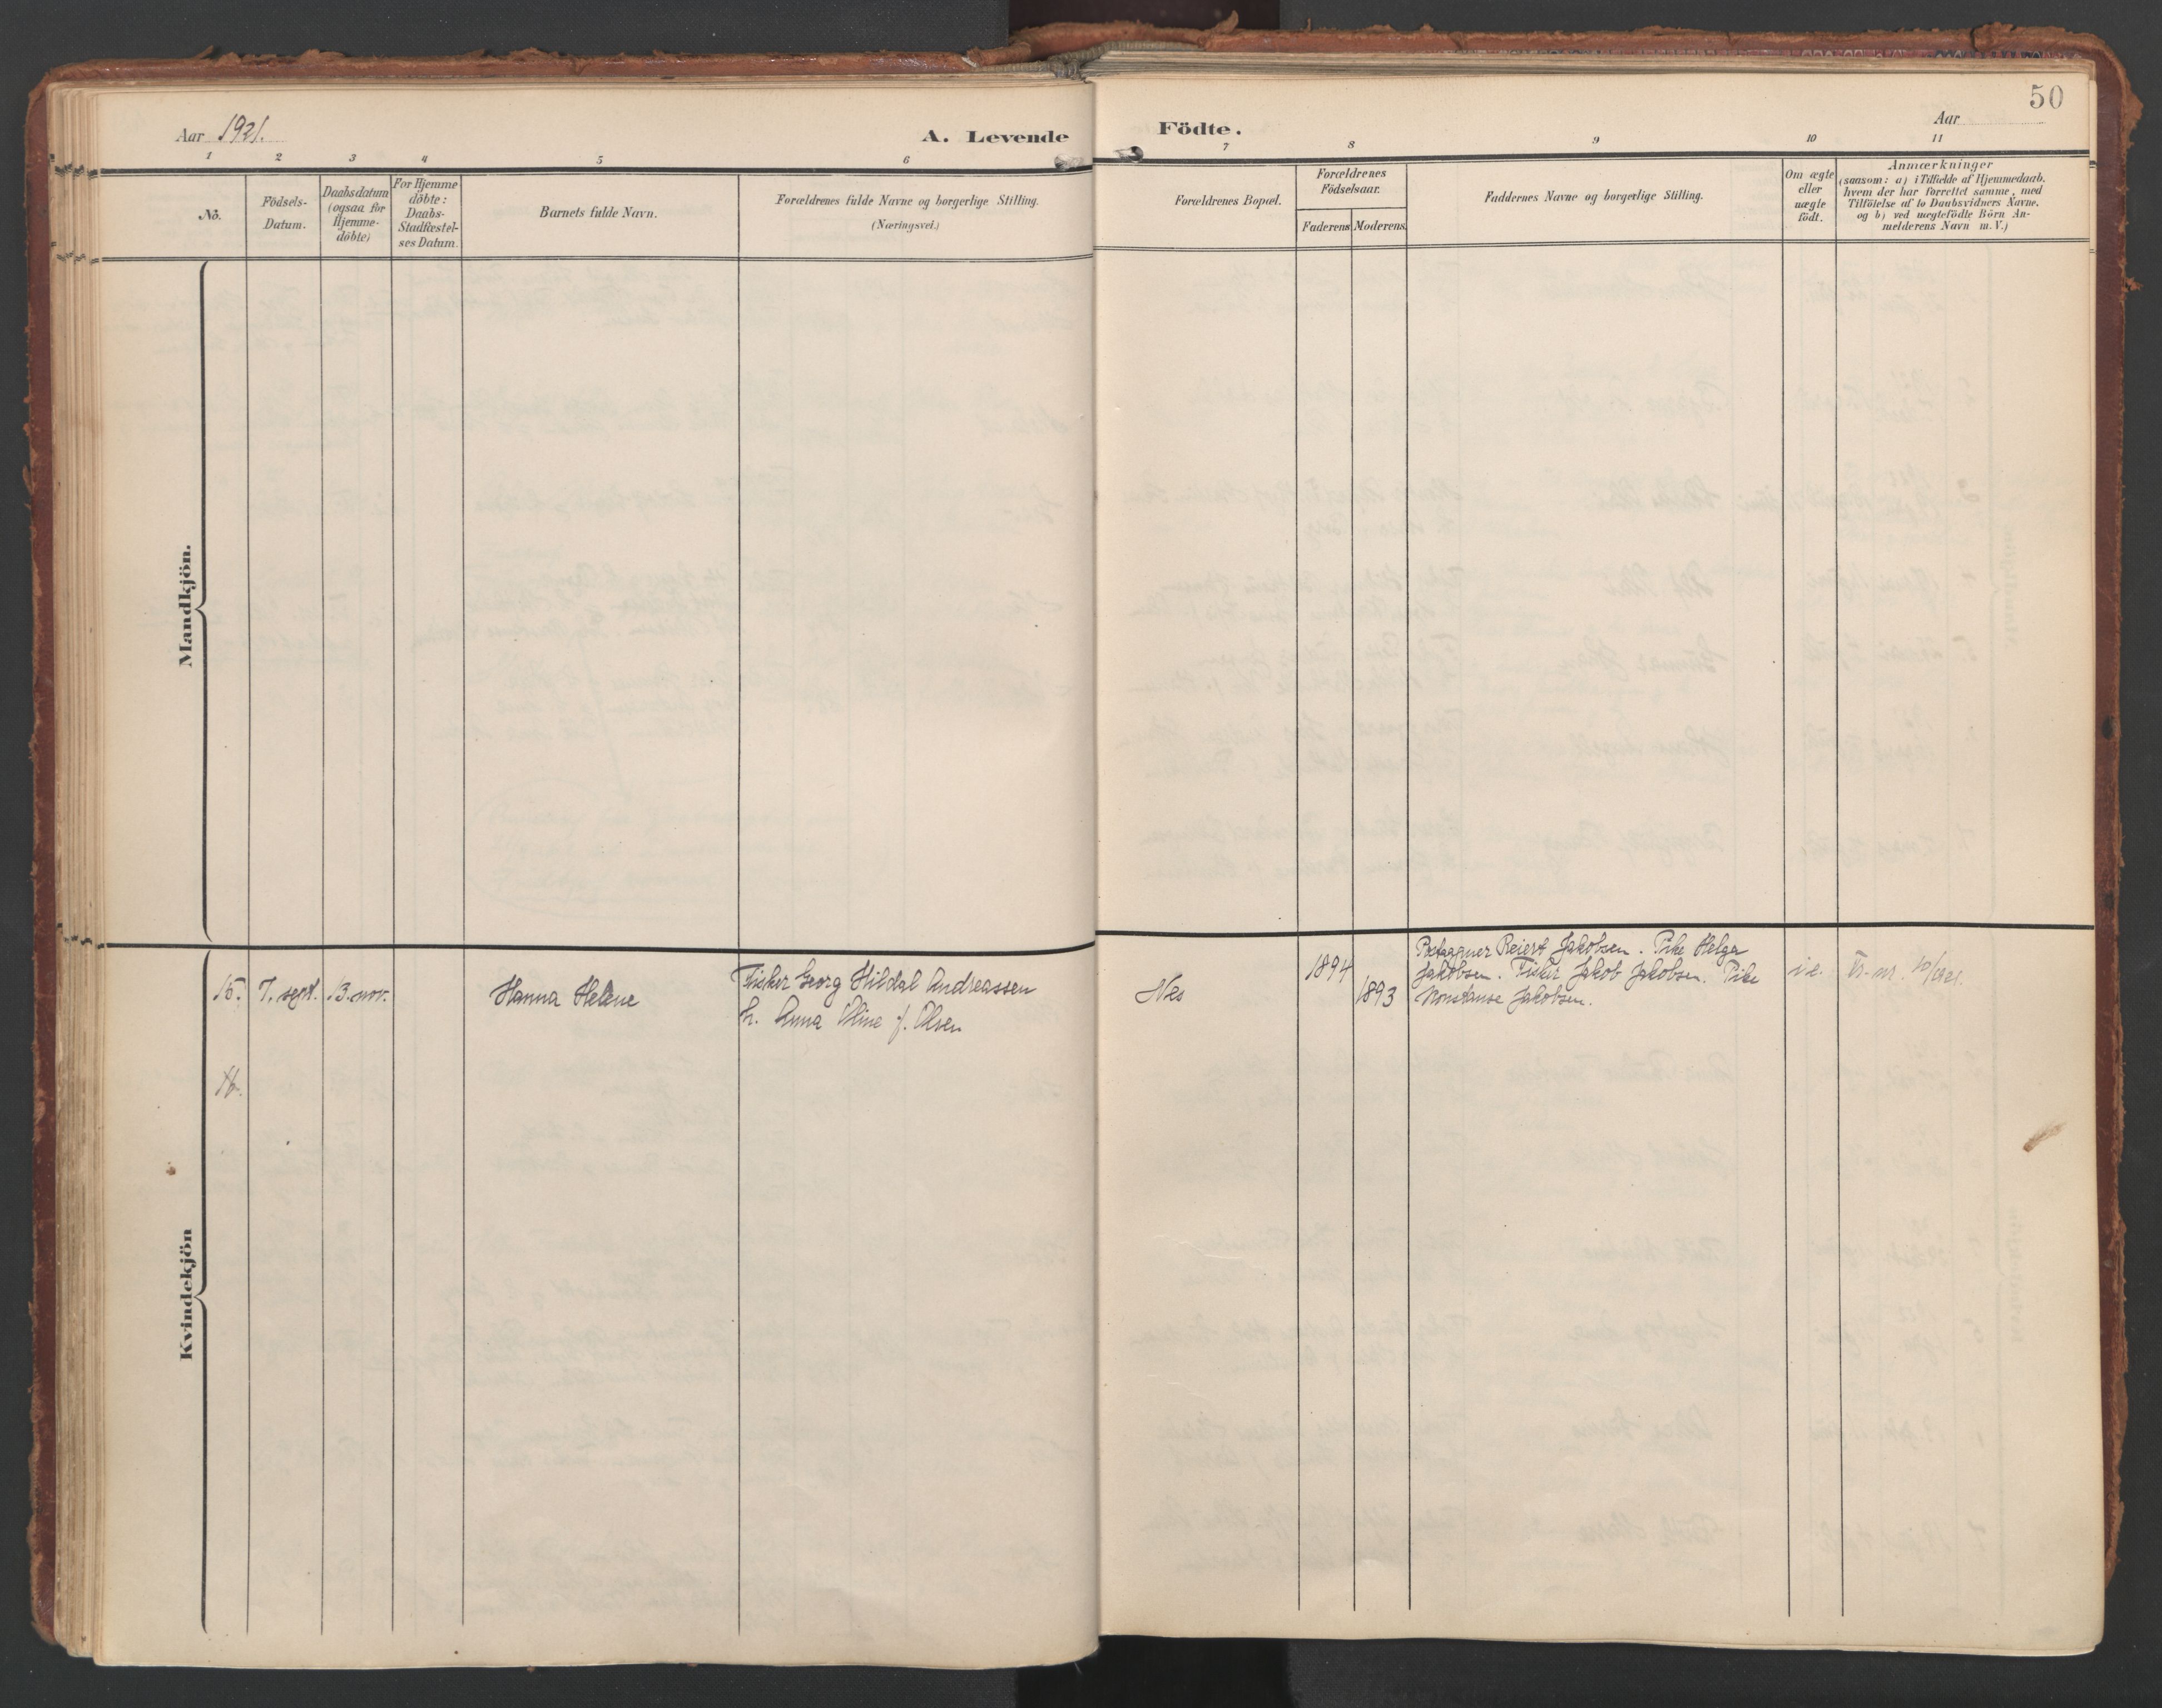 50
Aar 1921.
A. Levende Födte.
Aar
1 2 3 4 5 6 7 8 9 10 11
No.
Födsels-
Datum.
Daabsdatum
(ogsaa for
Hjemme-
döbte)
For Hjemme
döbte:
Daabs-
Stadfæstel-
ses Datum.
Barnets fulde Navn.
Forældrenes fulde Navne og borgerlige Stilling.
(Næringsvei.)
Forældrenes Bopæl.
Forældrenes
Födselsaar.
Faderens Moderens.
Faddernes Navne og borgerlige Stilling.
Om ægte
eller
uægte
födt.
Anmærkninger
(saasom: a) i Tilfælde af Hjemmedaab,
hvem der har forrettet samme, med
Tilföielse af to Daabsvidners Navne.
og b) ved uægtefödte Börn An-
melderens Navn m. V.)
Mandkjön.
Kvindekjön
15.
7. sept.
13. nov.
Hanna Helene
Fisker Georg Hildal Andreassen
h. Anna Oline f. Olsen
Nes
1894
1893
Postaapner Reiert Jakobsen. Pike Helga
Jakobsen. Fisker Jakob Jakobsen. Pike
Konstanse Jakobsen.
i e.
Tr. nr. 10/1921.
16.